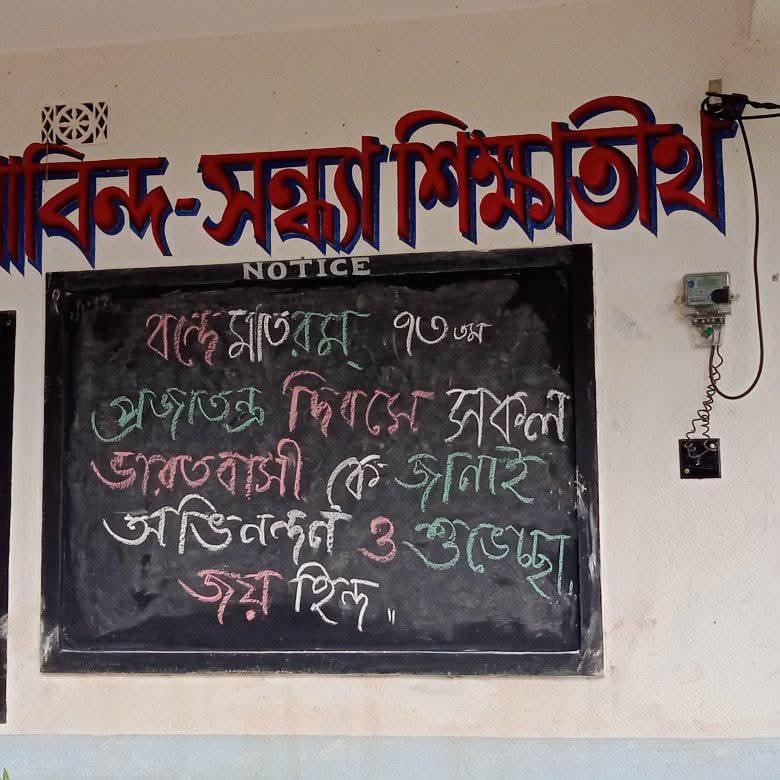 াবিন্দ-সন্ধ্যা শিক্ষাতীর্থ
NOTICE
বন্দে মাতরম্ ৭৩ তম
প্রজাতন্ত্র দিবসে সকল
ভারতবাসী কে জানাই
অভিনন্দন ও শুভেচ্ছা,
জয় হিন্দ ॥